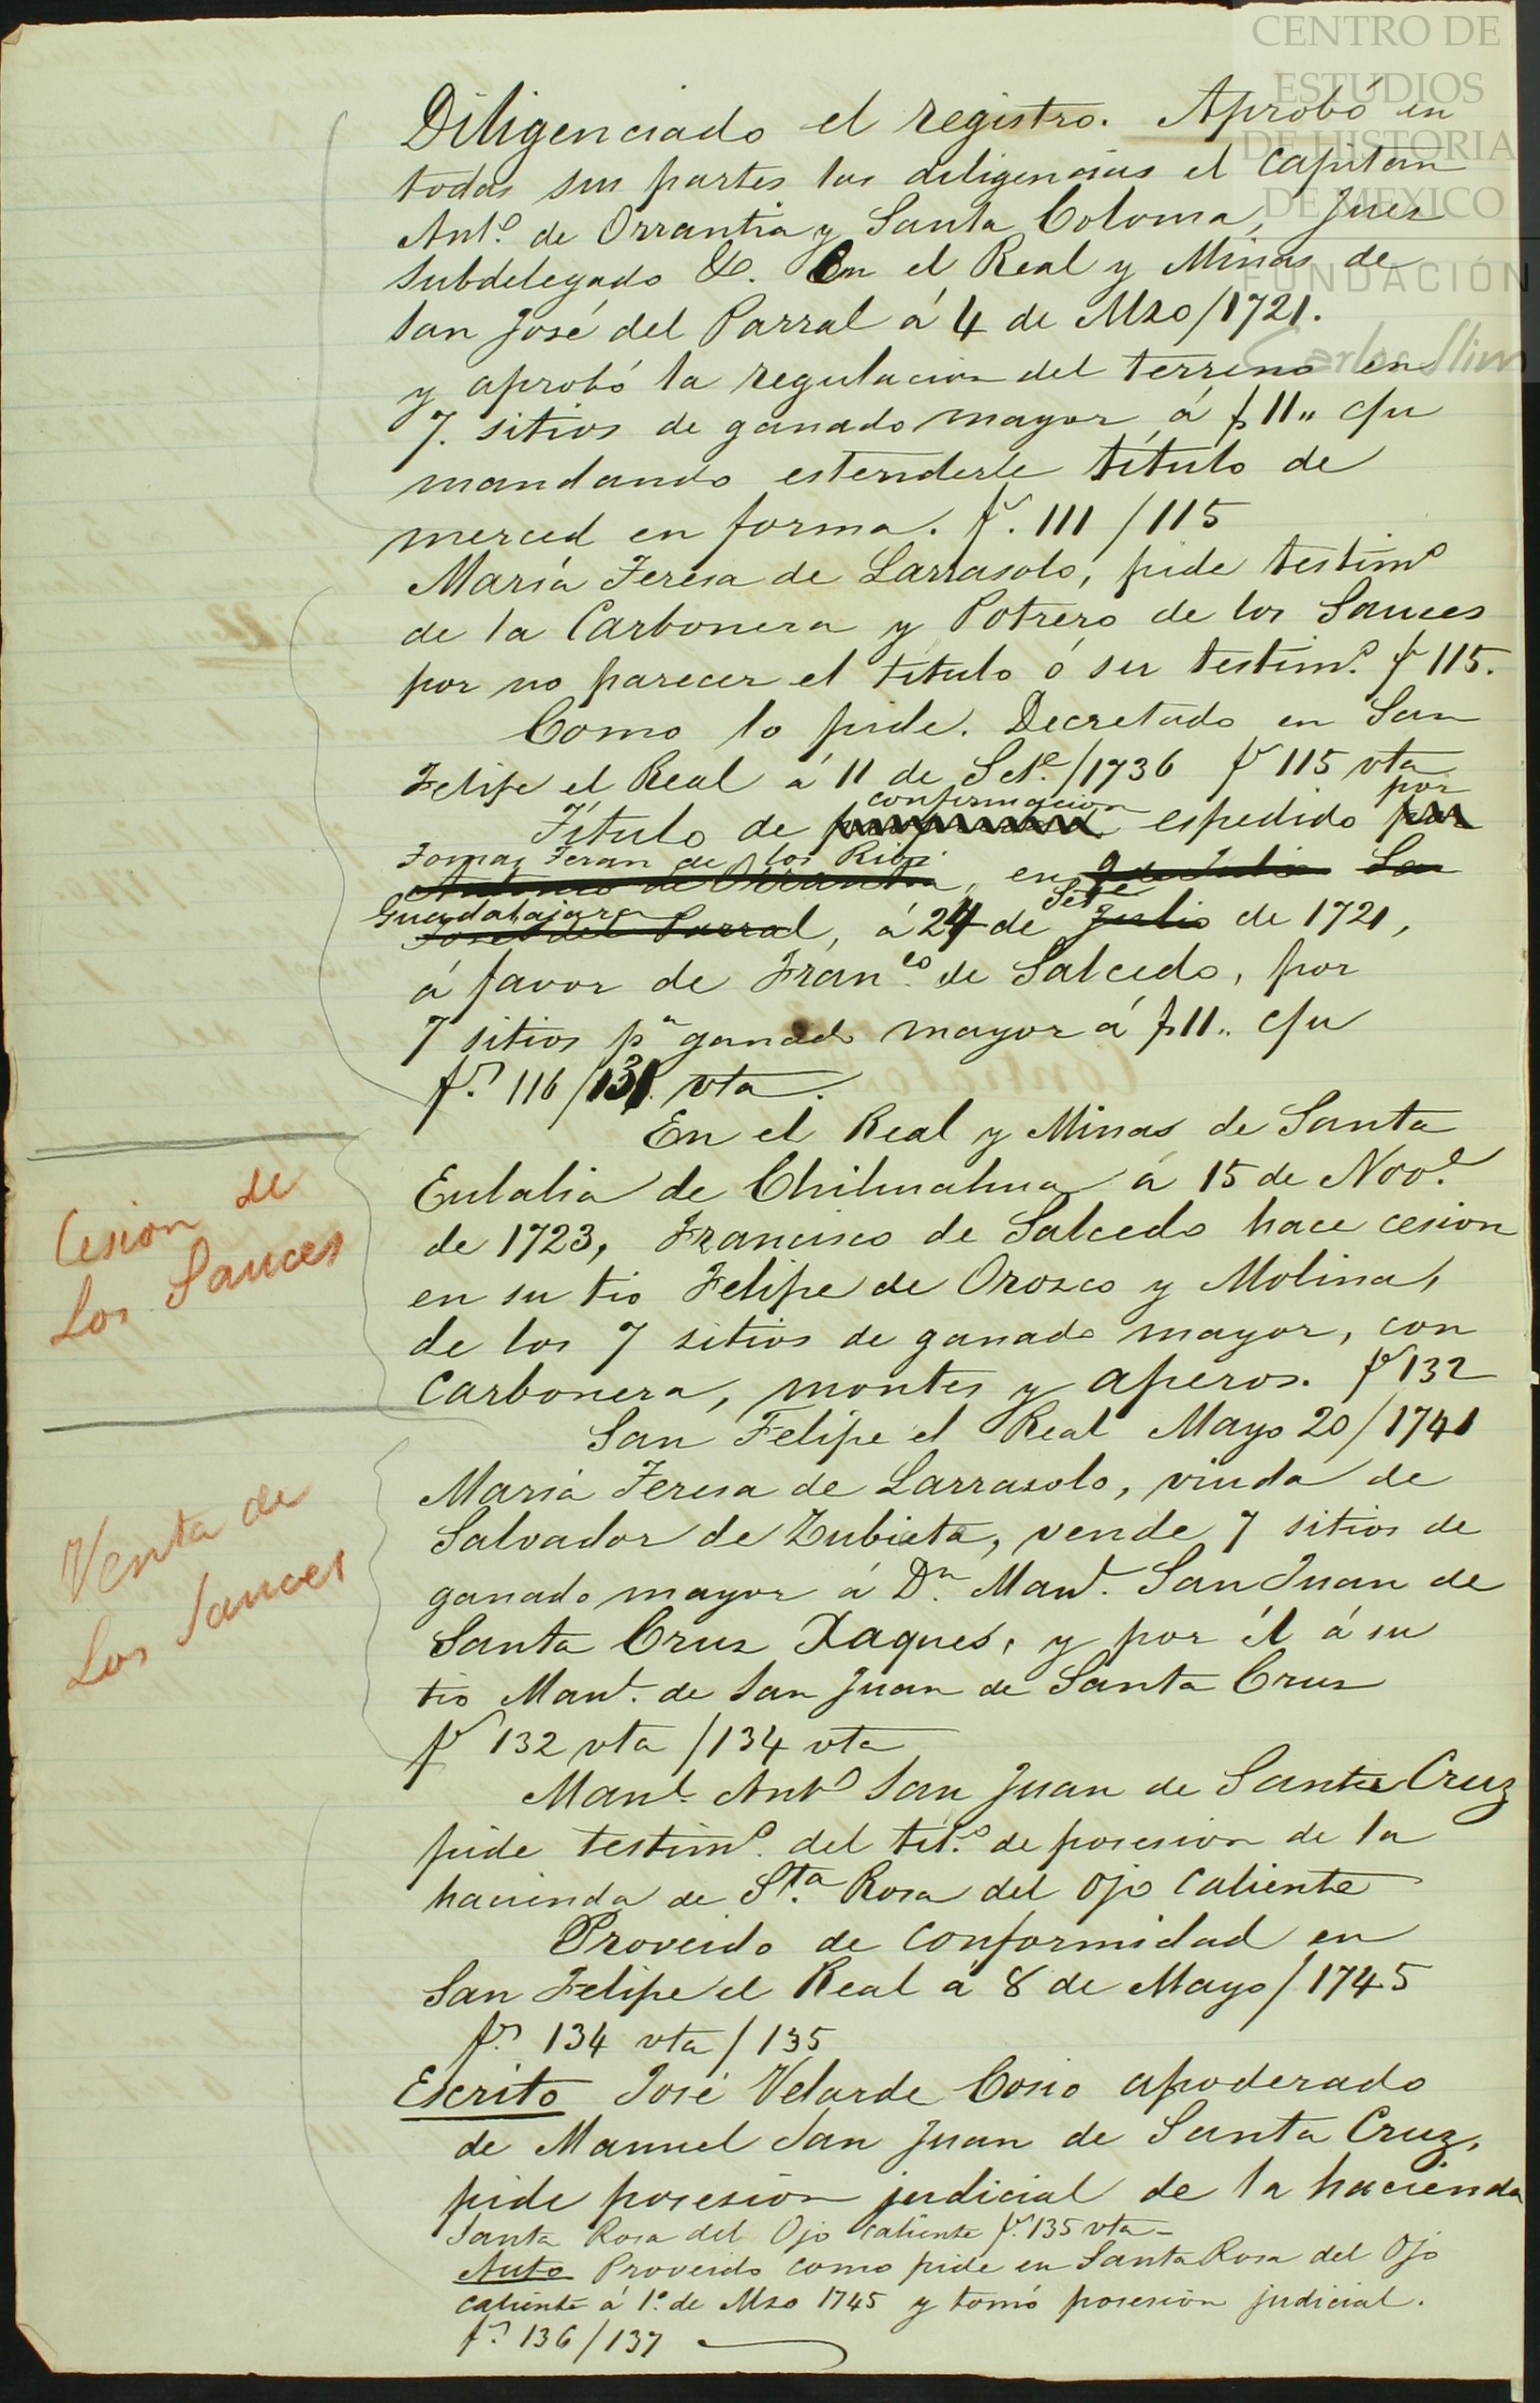 CENTRO DE
ESTUDIOS
DE HISTORIA
DE MEXICO
FUNDACIÓN
Carlos Slim
Diligenciado el registro. Aprobó en
todas sus partes las diligencias el Capitan
Antº. de Orrantia y Santa Coloma, Jues
subdelegado &. En el Real y Minas de
San José del Parral á 4 de Mzo/1721.
y aprobó la regulacion del terreno en
7. sitios de ganado mayor á $11,, c/u
mandando estenderle título de
merced en forma. f. 111/115
María Teresa de Larrasolo, pide testimº
de la Carbonera y Potrero de los Sauces
por no parecer el título ó su testimº. f 115.
Como lo pide. Decretado en San
Felipe el Real á 11 de Sete./1736 f 115 vta
Título de confirmacion espedido por
Tomas Teran de los Rios, en
Guadalajara, á 24 de Sete de 1721,
á favor de Franco. de Salcedo, por
7 sitios pa ganado mayor á $11.. c/u
fs. 116/131. vta.
En el Real y Minas de Santa
Eulalia de Chihuahua á 15 de Nove.
de 1723, Francisco de Salcedo hace cesion
en su tio Felipe de Orozco y Molina,
de los 7 sitios de ganado mayor, con
Carbonera, montes y aperos. f 132
Cesion de
Los Sauces
San Felipe el Real Mayo 20/1741
María Teresa de Larrasolo, viuda de
Salvador de Zubieta, vende 7 sitios de
ganado mayor á Dn. Manl. San Juan de
Santa Cruz Xaques, y por él á su
tio Manl. de San Juan de Santa Cruz
f 132 vta/134 vta
Venta de
Los Sauces
Manl. Antº San Juan de Santa Cruz
pide testimº. del titº. de posesion de la
hacienda de Sta. Rosa del Ojo Caliente
Proveido de conformidad en
San Felipe el Real á 8 de Mayo/1745
fs. 134 vta/135
Escrito José Velarde Cosio apoderado
de Manuel San Juan de Santa Cruz,
pide posesión judicial de la hacienda
Santa Rosa del Ojo caliente f. 135 vta-
Auto Proveido como pide en Santa Rosa del Ojo
caliente á 1º. de Mzo 1745 y tomó posesión judicial.
fs. 136/137